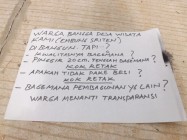 WARGA BANGGA DESA WISATA
KAMI (EMBUNG SRITEN)
DI BANGUN. TAPI ?
- KWALITASNYA BAGEMANA ?
- PINGGIR COCIR, TENGAH BAGEMANA ?
KOK RETAK
- APAKAH TIDAK PAKE BESI ?
KOK RETAK
- BAGEMANA PEMBANGUNAN YG LAIN ?
WARGA MENANTI TRANSPARANSI